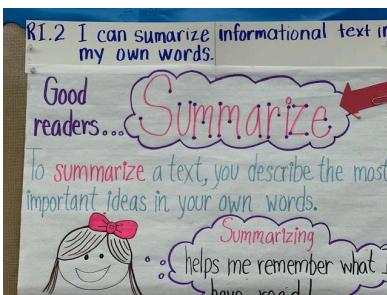 RI.2 I can sumarize informational text in
my own words.
Good
readers...
Summarize
To summarize a text, you describe the most
important ideas in your own words.
Summarizing
helps me remember what I
have read!